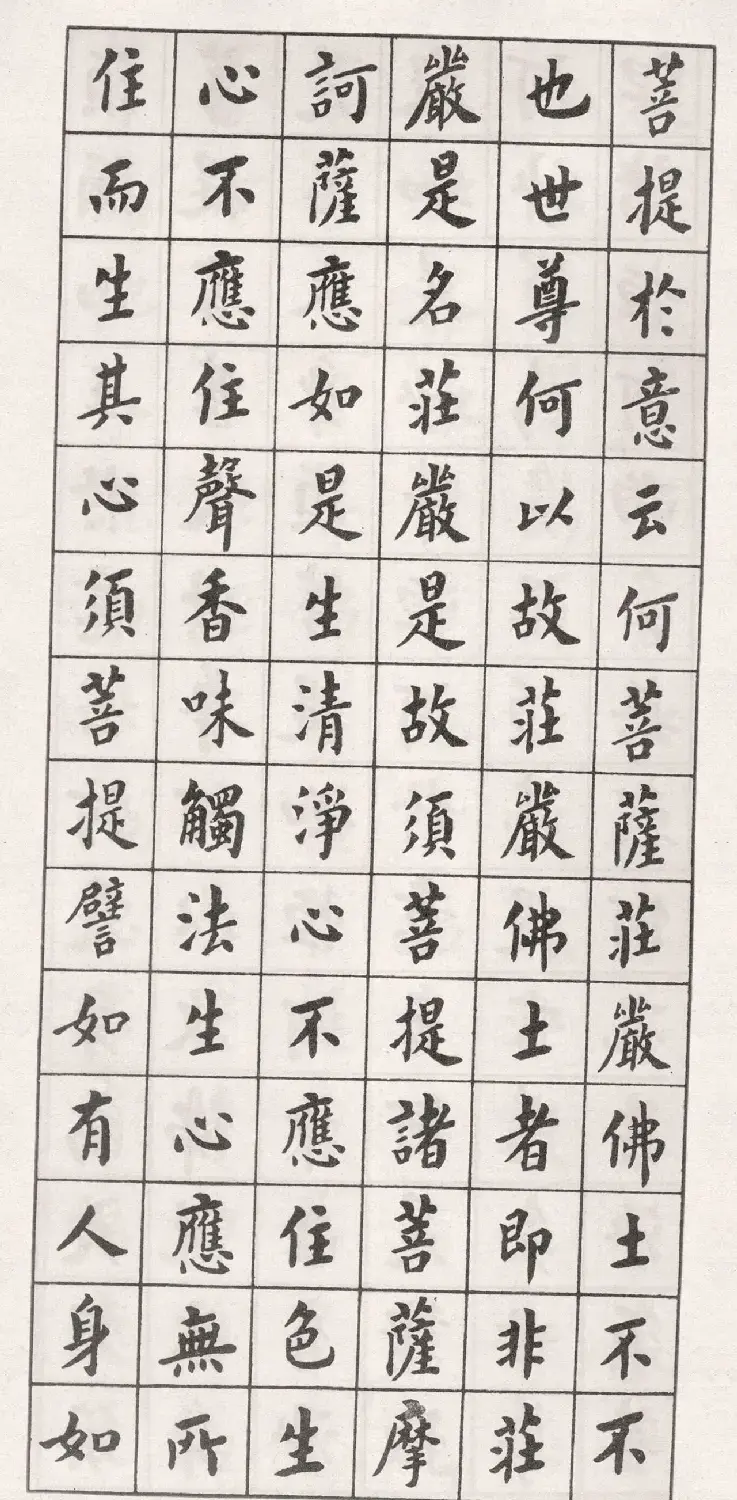 菩提於意云何菩薩莊嚴佛土不不
也世尊何以故莊嚴佛土者即非莊
嚴是名莊嚴是故須菩提諸菩薩摩
訶薩應如是生清淨心不應住色生
心不應住聲香味觸法生心應無所
住而生其心須菩提譬如有人身如